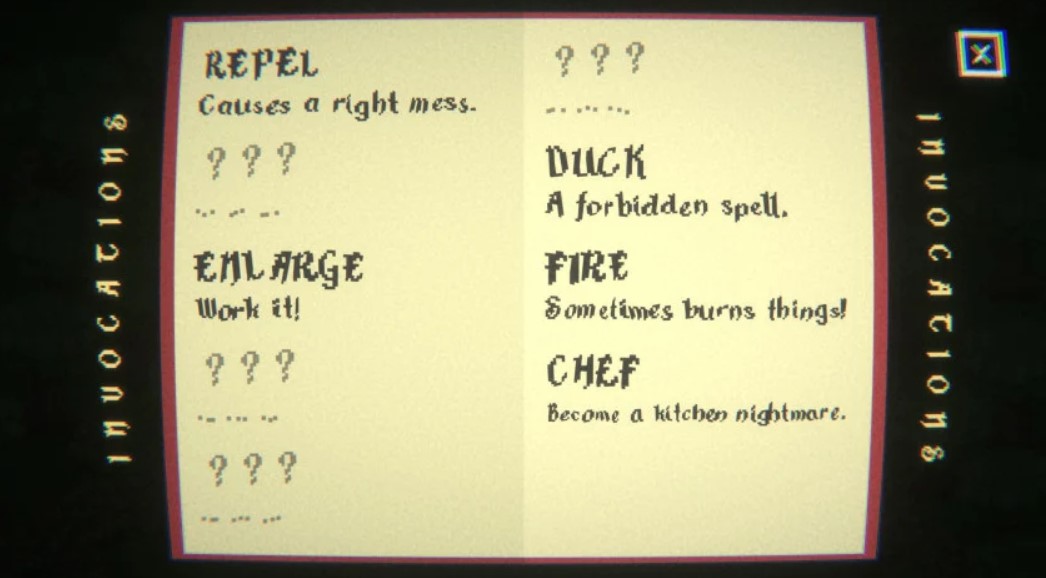 INVOCATIONS
REPEL
Causes a right mess.
? ? ?
... ... ...
ENLARGE
Work it!
? ? ?
... ... ...
? ? ?
... ... ...
? ? ?
... ... ...
DUCK
A forbidden spell.
FIRE
Sometimes burns things!
CHEF
Become a kitchen nightmare.
INVOCATIONS
X